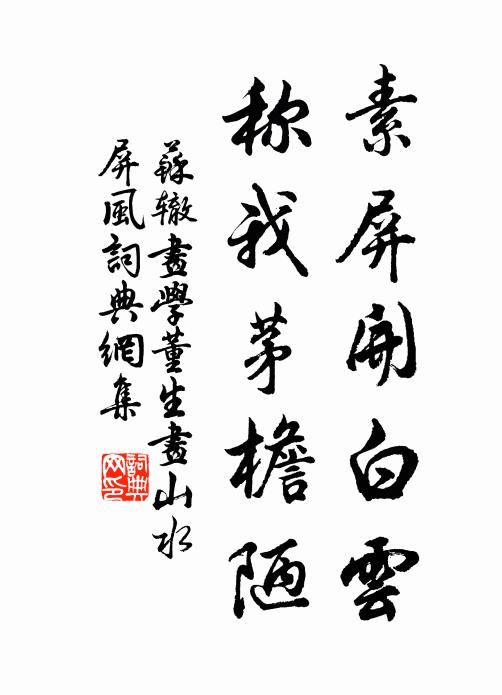 素屏開白雲
称我茅檐陋
蘇辙畫學董生畫山水
屏風詞典網集
詞典网印